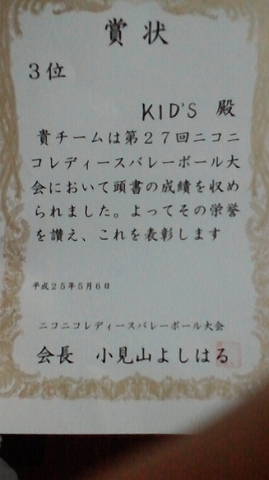 賞状
3位
KID'S 殿
貴チームは第27回ニコニ
コレディースバレーボール大
会において頭書の成績を収め
られました。よってその栄誉
を讃え、これを表彰します
平成25年5月6日
ニコニコレディースバレーボール大会
会長 小見山よしはる